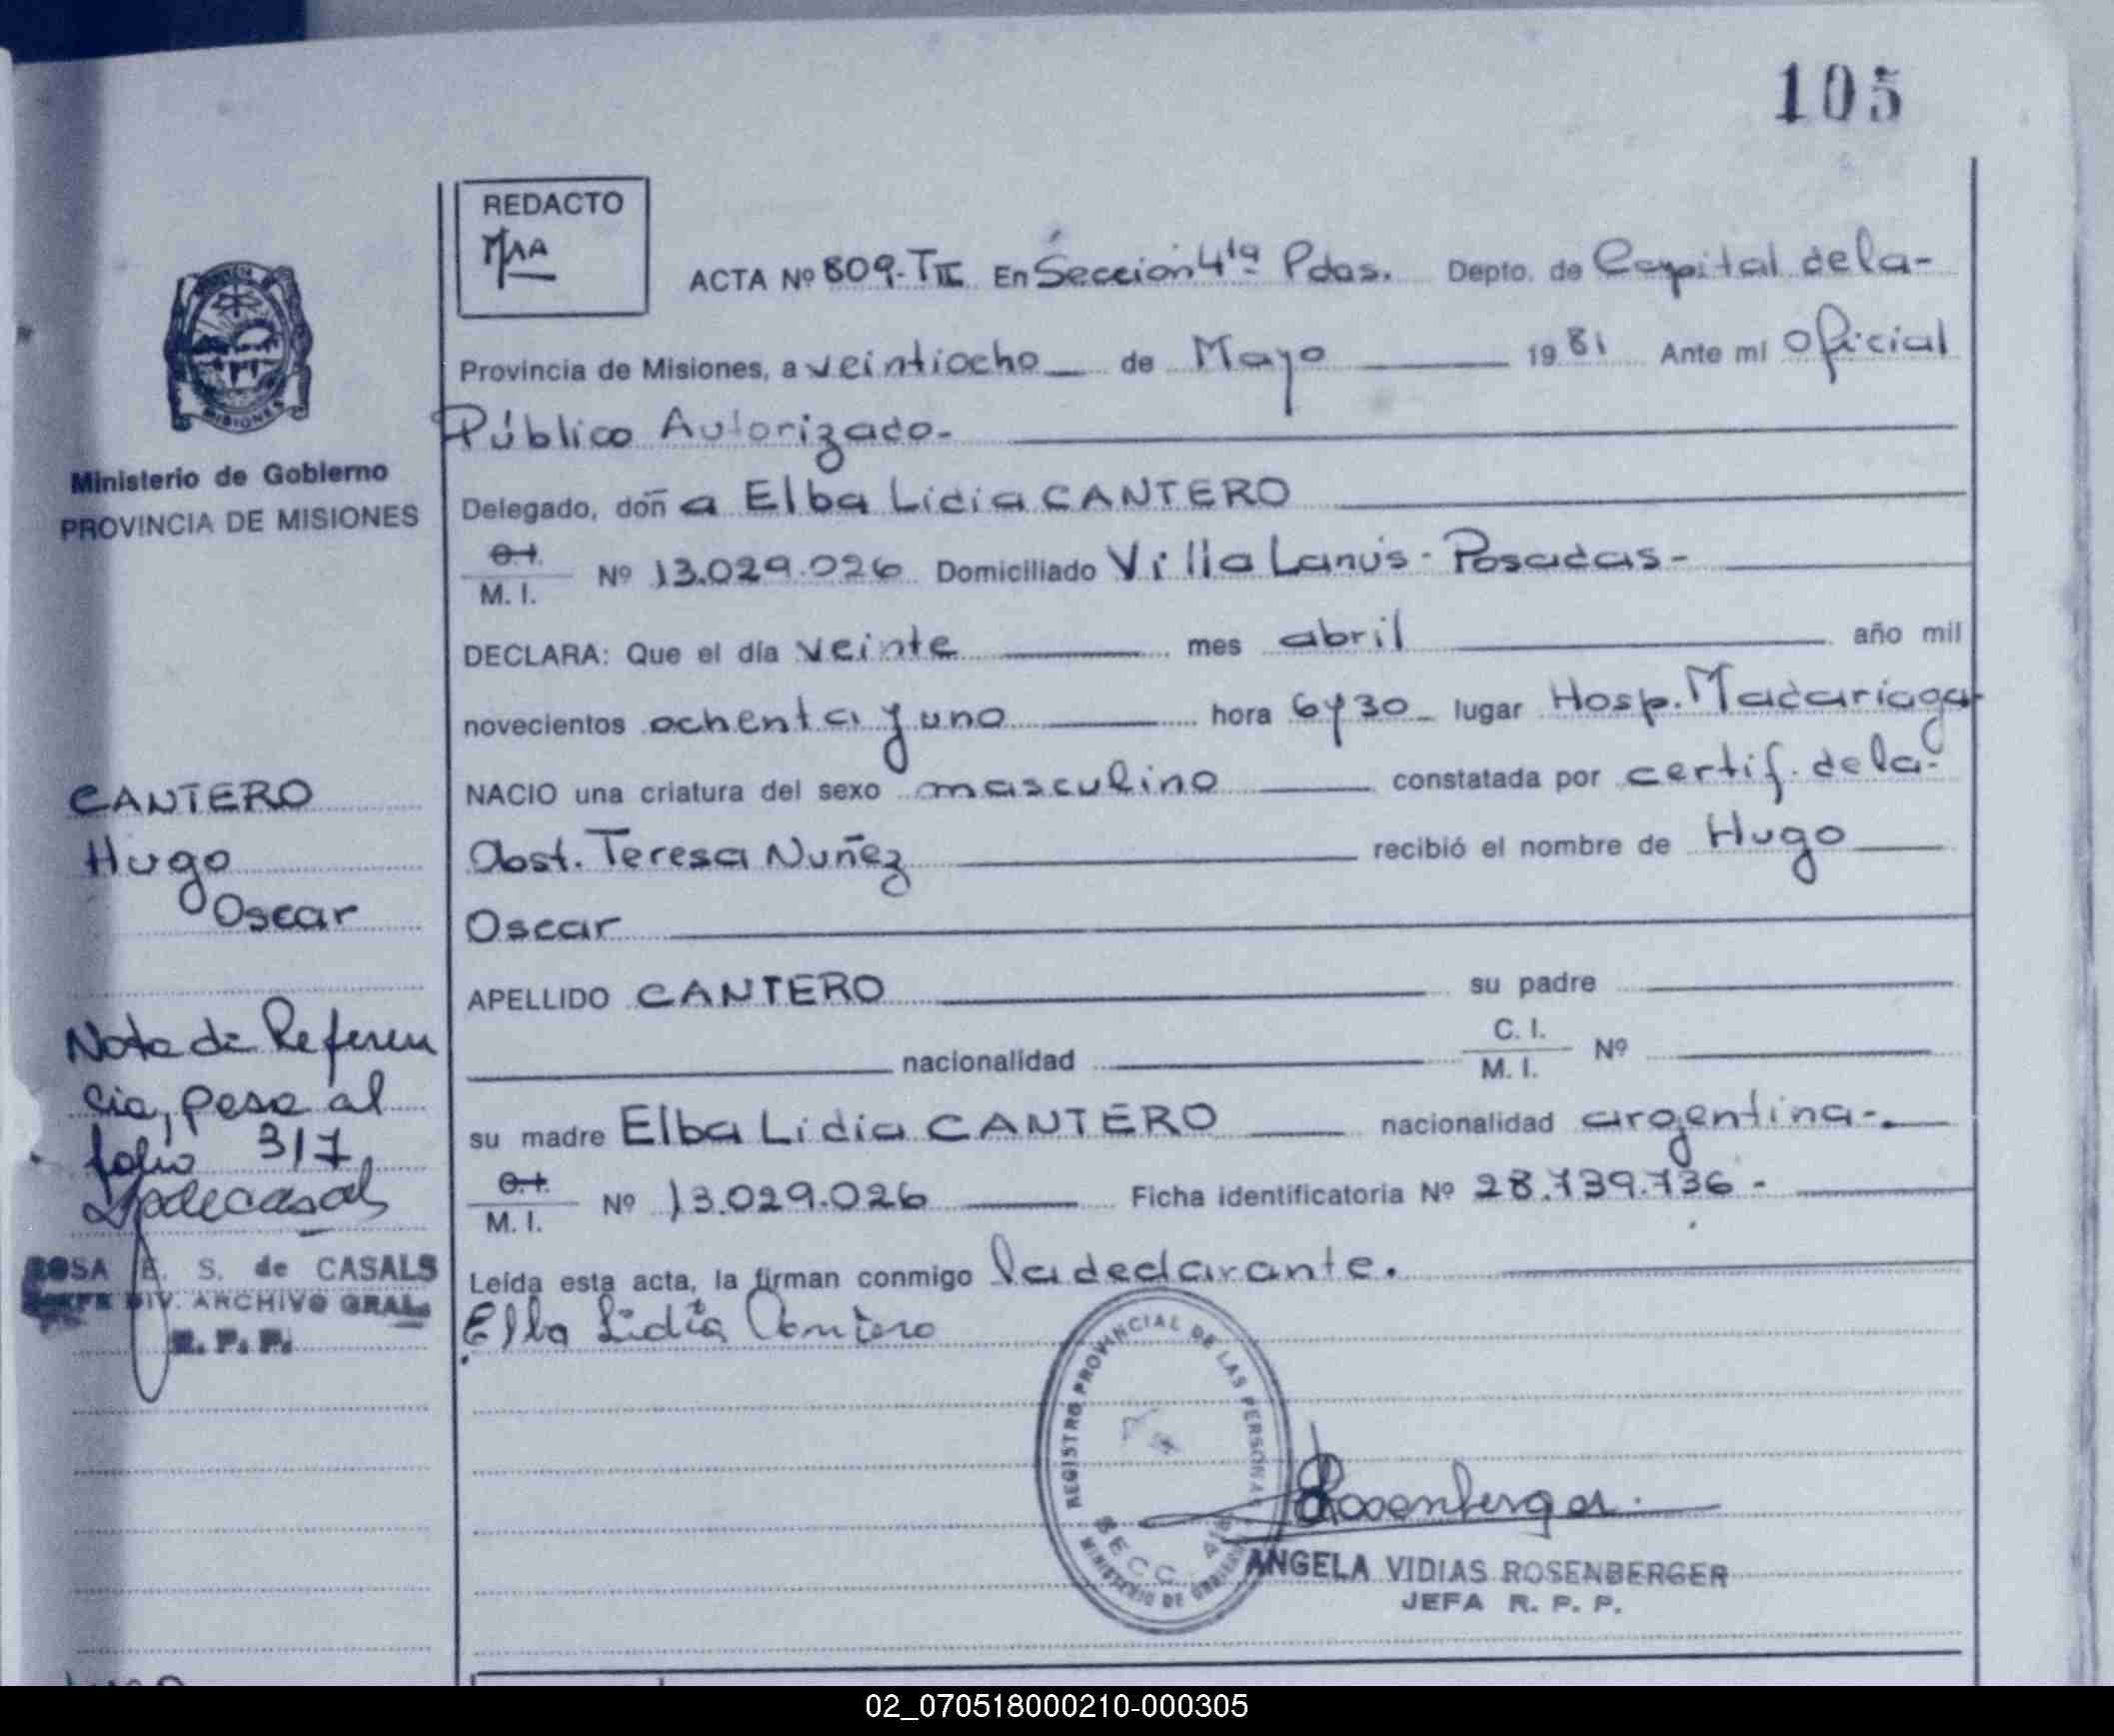 105
REDACTO
MAA
ACTA Nº 809-TII En Sección 4ta Pdas. Depto. de Capital de la-
Provincia de Misiones, a veintiocho de Mayo 1981 Ante mi Oficial
Público Autorizado-
Delegado, doña Elba Lidia CANTERO
C.I.
M. I. Nº 13.029.026 Domiciliado Villa Lanús - Posadas-
DECLARA: Que el día veinte mes abril año mil
novecientos ochenta y uno hora 6y30 lugar Hosp. Madariaga-
NACIO una criatura del sexo masculino constatada por certif. de la-
Obst. Teresa Nuñez recibió el nombre de Hugo
Oscar
APELLIDO CANTERO su padre
nacionalidad C. I.
M. I. Nº
su madre Elba Lidia CANTERO nacionalidad argentina-.
C.I.
M. I. Nº 13.029.026 Ficha identificatoria Nº 28.739.736-
Leída esta acta, la firman conmigo la declarante.
Elba Lidia Cantero
REGISTRO PROVINCIAL DE LAS PERSONAS
SECC. 4ta
MINISTERIO DE GOBIERNO
Rosenberger
ANGELA VIDIAS ROSENBERGER
JEFA R. P. P.
MISIONES
Ministerio de Gobierno
PROVINCIA DE MISIONES
CANTERO
Hugo
Oscar
Nota de Referen
cia, pasa al
folio 317
ROSA E. S. de CASALS
JEFE DIV. ARCHIVO GRAL.
R. P. P.
02_070518000210-000305